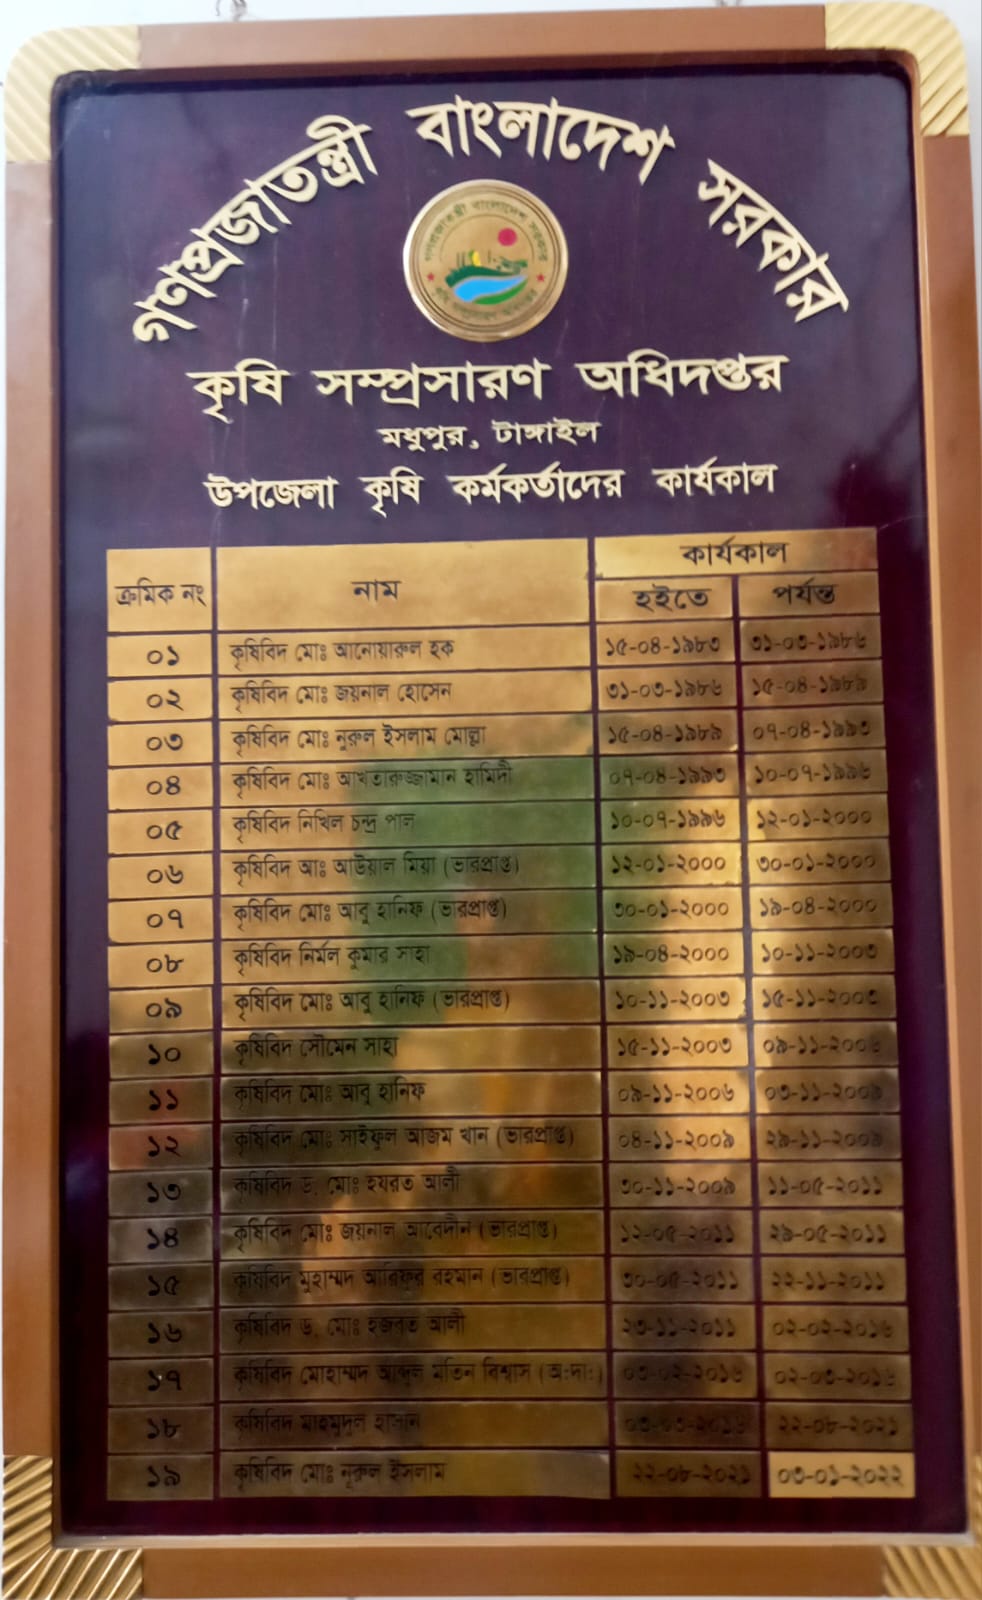 গণপ্রজাতন্ত্রী বাংলাদেশ সরকার
গণপ্রজাতন্ত্রী বাংলাদেশ সরকার
কৃষি সম্প্রসারণ অধিদপ্তর
কৃষি সম্প্রসারণ অধিদপ্তর
মধুপুর, টাঙ্গাইল
উপজেলা কৃষি কর্মকর্তাদের কার্যকাল
ক্রমিক নং নাম কার্যকাল
হইতে পর্যন্ত
০১ কৃষিবিদ মোঃ আনোয়ারুল হক ১৫-০৪-১৯৮৩ ৩১-০৩-১৯৮৬
০২ কৃষিবিদ মোঃ জয়নাল হোসেন ৩১-০৩-১৯৮৬ ১৫-০৪-১৯৮৯
০৩ কৃষিবিদ মোঃ নুরুল ইসলাম মোল্লা ১৫-০৪-১৯৮৯ ০৭-০৪-১৯৯৩
০৪ কৃষিবিদ মোঃ আখতারুজ্জামান হামিদী ০৭-০৪-১৯৯৩ ১০-০৭-১৯৯৬
০৫ কৃষিবিদ নিখিল চন্দ্র পাল ১০-০৭-১৯৯৬ ১২-০১-২০০০
০৬ কৃষিবিদ আঃ আউয়াল মিয়া (ভারপ্রাপ্ত) ১২-০১-২০০০ ৩০-০১-২০০০
০৭ কৃষিবিদ মোঃ আবু হানিফ (ভারপ্রাপ্ত) ৩০-০১-২০০০ ১৯-০৪-২০০০
০৮ কৃষিবিদ নির্মল কুমার সাহা ১৯-০৪-২০০০ ১০-১১-২০০৩
০৯ কৃষিবিদ মোঃ আবু হানিফ (ভারপ্রাপ্ত) ১০-১১-২০০৩ ১৫-১১-২০০৩
১০ কৃষিবিদ সৌমেন সাহা ১৫-১১-২০০৩ ০৯-১১-২০০৬
১১ কৃষিবিদ মোঃ আবু হানিফ ০৯-১১-২০০৬ ০৩-১১-২০০৯
১২ কৃষিবিদ মোঃ সাইফুল আজম খান (ভারপ্রাপ্ত) ০৪-১১-২০০৯ ২৯-১১-২০০৯
১৩ কৃষিবিদ ড. মোঃ হযরত আলী ৩০-১১-২০০৯ ১১-০৫-২০১১
১৪ কৃষিবিদ মোঃ জয়নাল আবেদীন (ভারপ্রাপ্ত) ১২-০৫-২০১১ ২৯-০৫-২০১১
১৫ কৃষিবিদ মুহাম্মদ আরিফুর রহমান (ভারপ্রাপ্ত) ৩০-০৫-২০১১ ২২-১১-২০১১
১৬ কৃষিবিদ ড. মোঃ হজরত আলী ২৩-১১-২০১১ ০২-০২-২০১৬
১৭ কৃষিবিদ মোহাম্মদ আব্দুল মতিন বিশ্বাস (অঃদাঃ) ০৩-০২-২০১৬ ০২-০৩-২০১৬
১৮ কৃষিবিদ মাহমুদুল হাসান ০৩-০৩-২০১৬ ২২-০৮-২০২১
১৯ কৃষিবিদ মোঃ নূরুল ইসলাম ২২-০৮-২০২১ ০৩-০১-২০২২